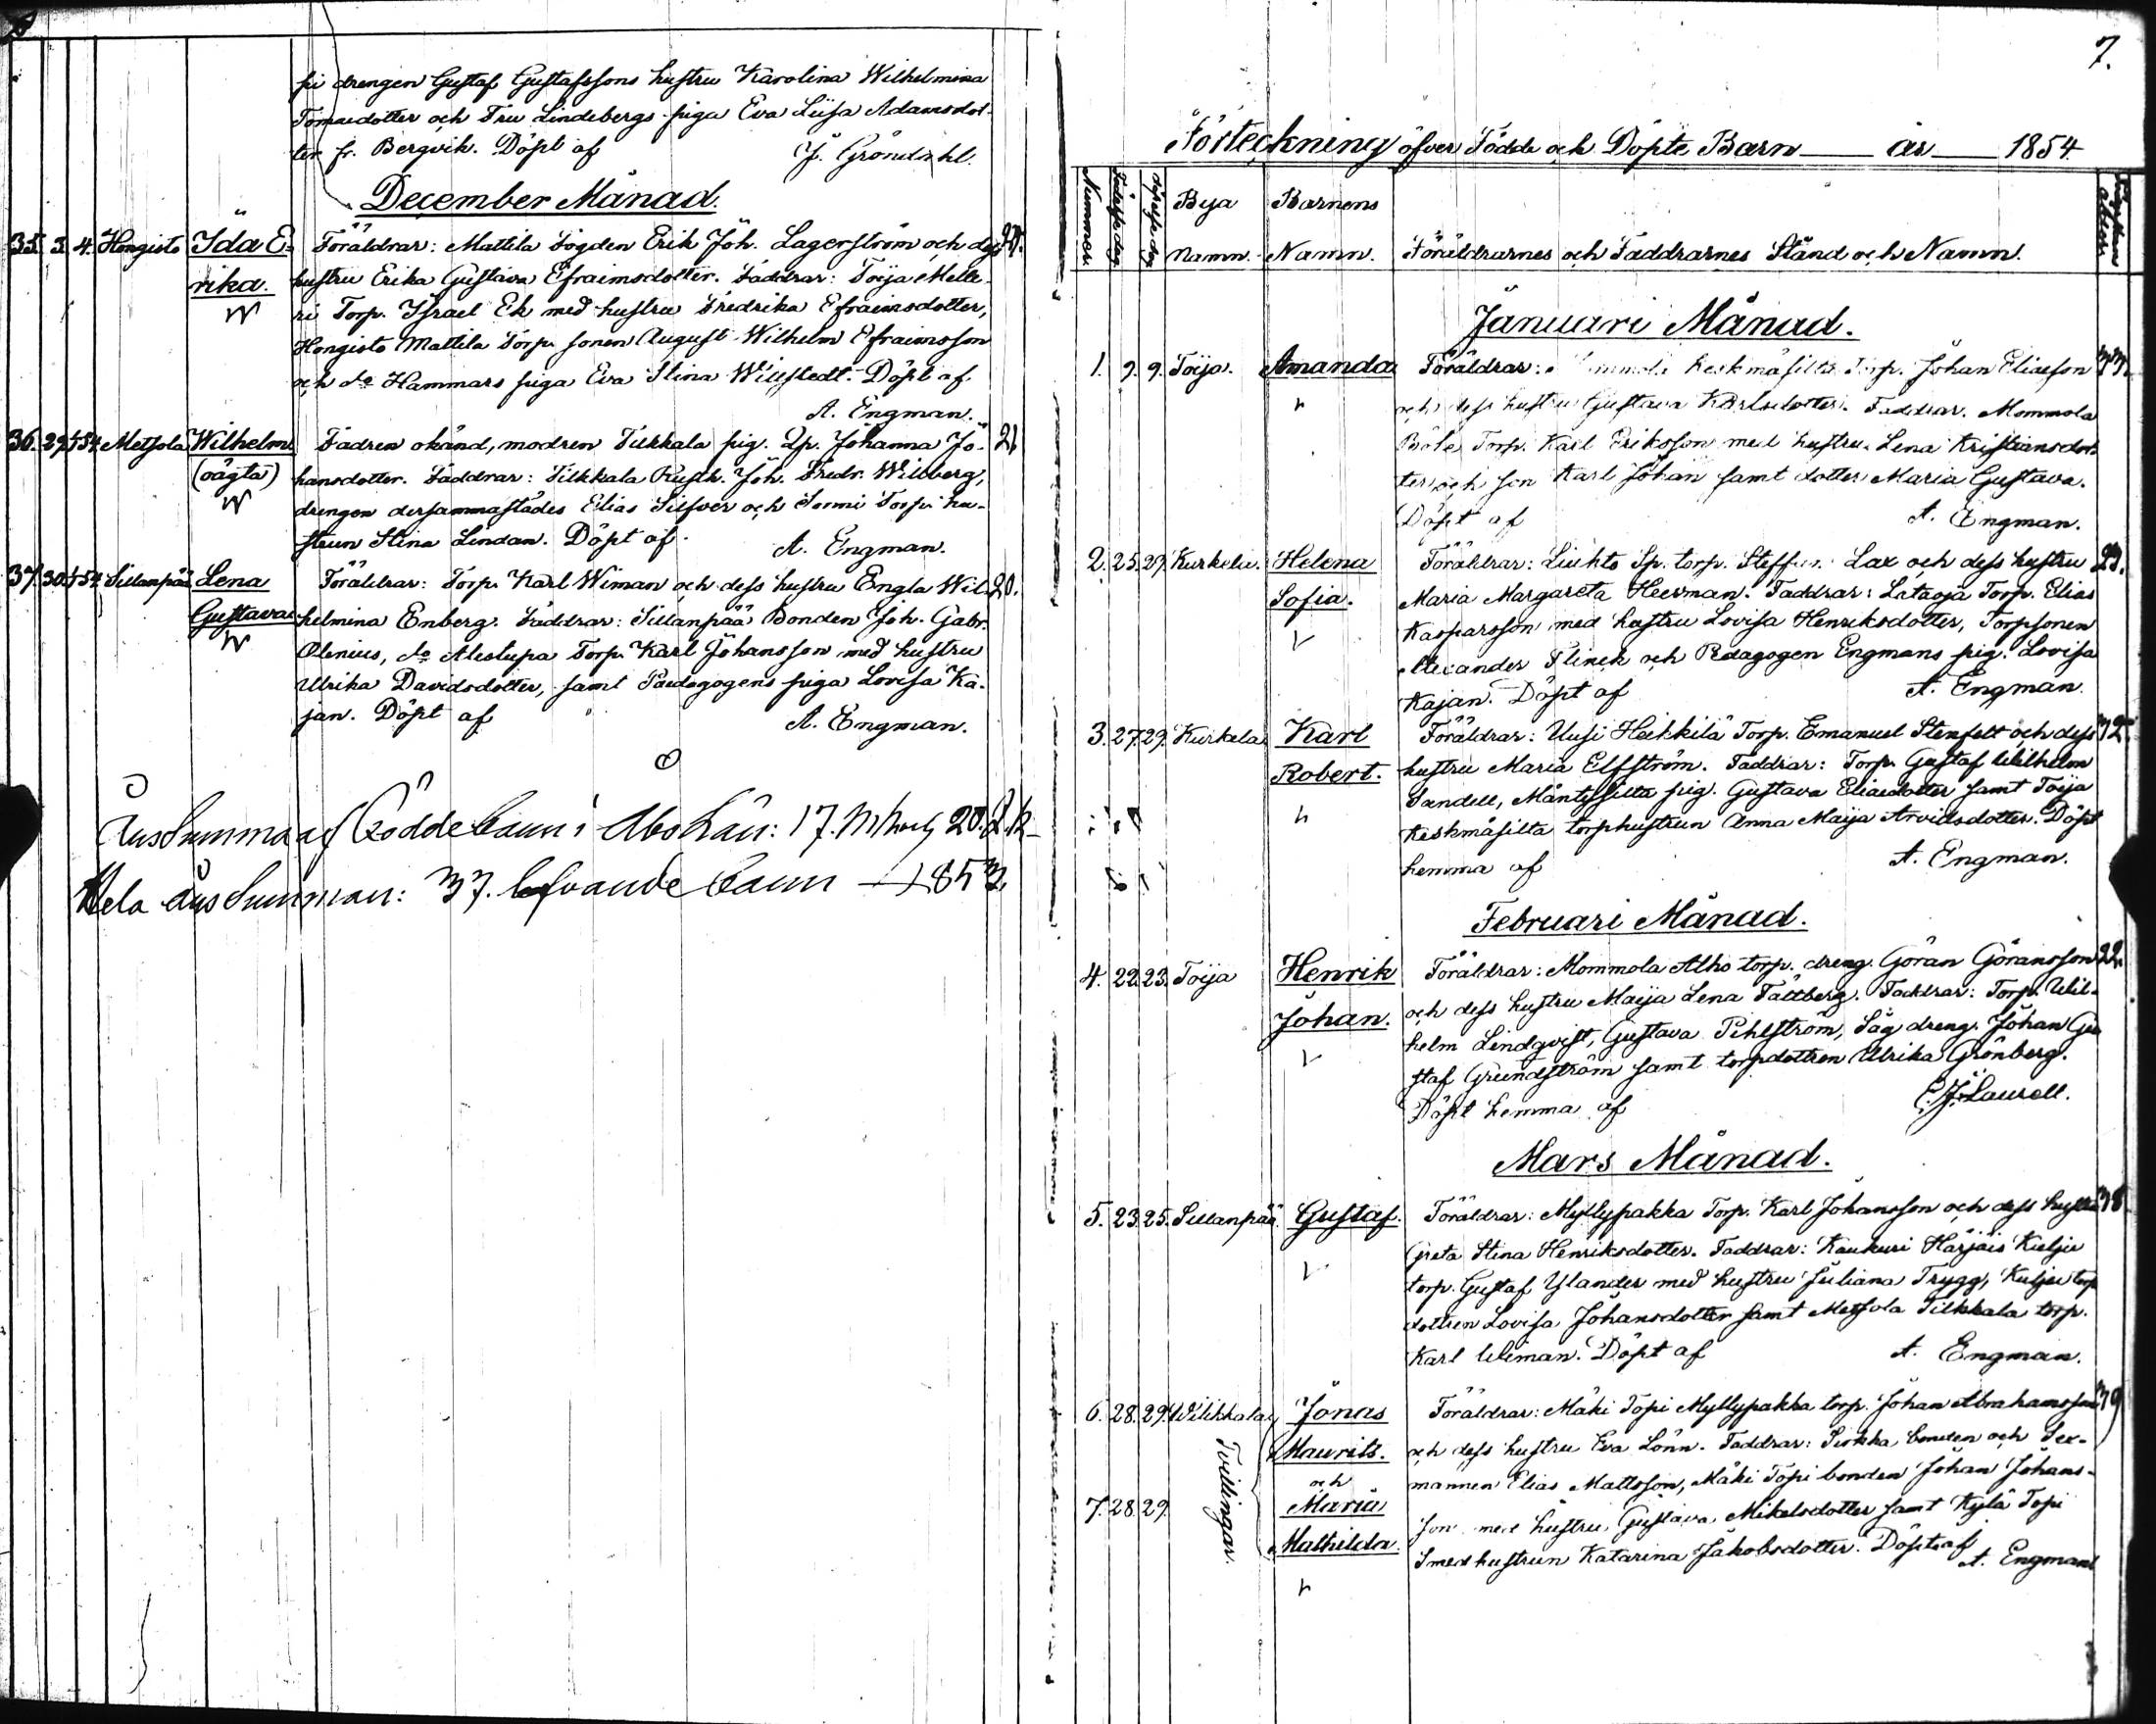 pi drengen Gustaf Gustafssons hustru Karolina Wilhelmina
Tomasdotter och Fru Lindebergs piga Eva Liisa Adamsdot-
ter fr. Bergvik. Döpt af J. Gröndahl.
December Månad.
35. 3. 4. Hongisto Ida E- Föräldrar: Mattila Sögden Erik Joh. Lagerström och dess
rika. hustru Erika Gustava Efraimsdotter. Faddrar: Toija Melle-
ri Torp. Israel Ek med hustru Fredrika Efraimsdotter,
Hongisto Mattila Torp. sonen August Wilhelm Efraimsson
och do Hammars piga Eva Stina Willstedt. Döpt af
A. Engman.
36. 29. 1/1 54. Metsola Wilhelm Fadren okänd, modren Tilkkala pig. Qp. Johanna Jo- 21
(oägta) hansdotter. Faddrar: Tilkkala Rusth. Joh. Fredr. Willberg,
drengen dersammastädes Elias Silfver och Sormi Torp. hu-
strun Stina Lindan. Döpt af A. Engman.
37. 30. 1/1 54. Sillanpää Lena Föräldrar: Torp. Karl Wiman och dess hustru Engla Wil- 20.
Gustava helmina Enberg. Faddrar: Sillanpää Bonden Joh. Gabr.
Alenius, do Alestupa Torp. Karl Johansson med hustru
Ulrika Davidsdotter, samt Paedagogens piga Lovisa Ka-
jan. Döpt af A. Engman.
Års Summa af Födde barn i Åbo Län: 17. M. k. och 20. Q. k.
Hela års Summan: 37. lefvande barn 1853.
7.
Förteckning öfver Födde och Döpte Barn år 1854
Nummer. Födelse dag Döpelse dag Bya Barnens
Namn. Namn. Föräldrarnes och Faddrarnes Stånd och Namn.
Januari Månad.
1. 9. 9. Toija. Amanda Föräldrar: Mommola Keskmäsilta Torp. Johan Eliasson 33.
och dess hustru Gustava Karlsdotter. Faddrar. Mommola
Böle Torp. Karl Eriksson med hustru Lena Kristiansdot-
ter och son Karl Johan samt dotter Maria Gustava.
Döpt af A. Engman.
2. 25. 27. Kurkela. Helena Föräldrar: Liuhto Sp. torp. Steffan Lax och dess hustru 23.
Sofia. Maria Margareta Heerman. Faddrar: Lataoja Torp. Elias
Kasparsson med hustru Lovisa Henriksdotter, Torpsonen
Alexander Flinck och Pedagogen Engmans pig. Lovisa
Kajan. Döpt af A. Engman.
3. 27. 29. Kurkela Karl Föräldrar: Uusi Heikkilä Torp. Emanuel Stenfelt och dess 32.
Robert. hustru Maria Elfström. Faddrar: Torp. Gustaf Wilhelm
Sandell, Mäntysilta pig. Gustava Eliaedotter samt Toija
Keskmäsilta torphustrun Anna Maija Arvidsdotter. Döpt
hemma af A. Engman.
Februari Månad.
4. 22. 23. Toija Henrik Föräldrar: Mommola Alho torp. dreng. Göran Göransson 22.
Johan. och dess hustru Maija Lena Fältberg. Faddrar: Torp. Wil-
helm Lindqvist, Gustava Pihlström, Såg dreng. Johan Gu-
staf Grundström samt torpdottren Ulrika Grönberg.
Döpt hemma af C. J. Laurell.
Mars Månad.
5. 23. 25. Sillanpää. Gustaf. Föräldrar: Myllypakka Torp. Karl Johansson och dess hustru 38
Greta Stina Henriksdotter. Faddrar: Kaukuri Härjäis Kulju
torp. Gustaf Ylander med hustru Juliana Trygg, Kulju torp
dottren Lovisa Johansdotter samt Metsola Tilkkala torp.
Karl Wiman. Döpt af A. Engman.
6. 28. 29. Wilikkala Jonas Föräldrar: Mäki Topi Myllypakka torp. Johan Abrahamsson 39
Maurits. och dess hustru Eva Lönn. Faddrar: Siokka bonden och Sex-
och mannen Elias Mattsson, Mäki Topi bonden Johan Johans-
7. 28. 29. Tvillingar. Maria son med hustru Gustava Mikelsdotter samt Kylä Topi
Mathilda. Smedhustrun Katarina Jakobsdotter. Döpt af A. Engman